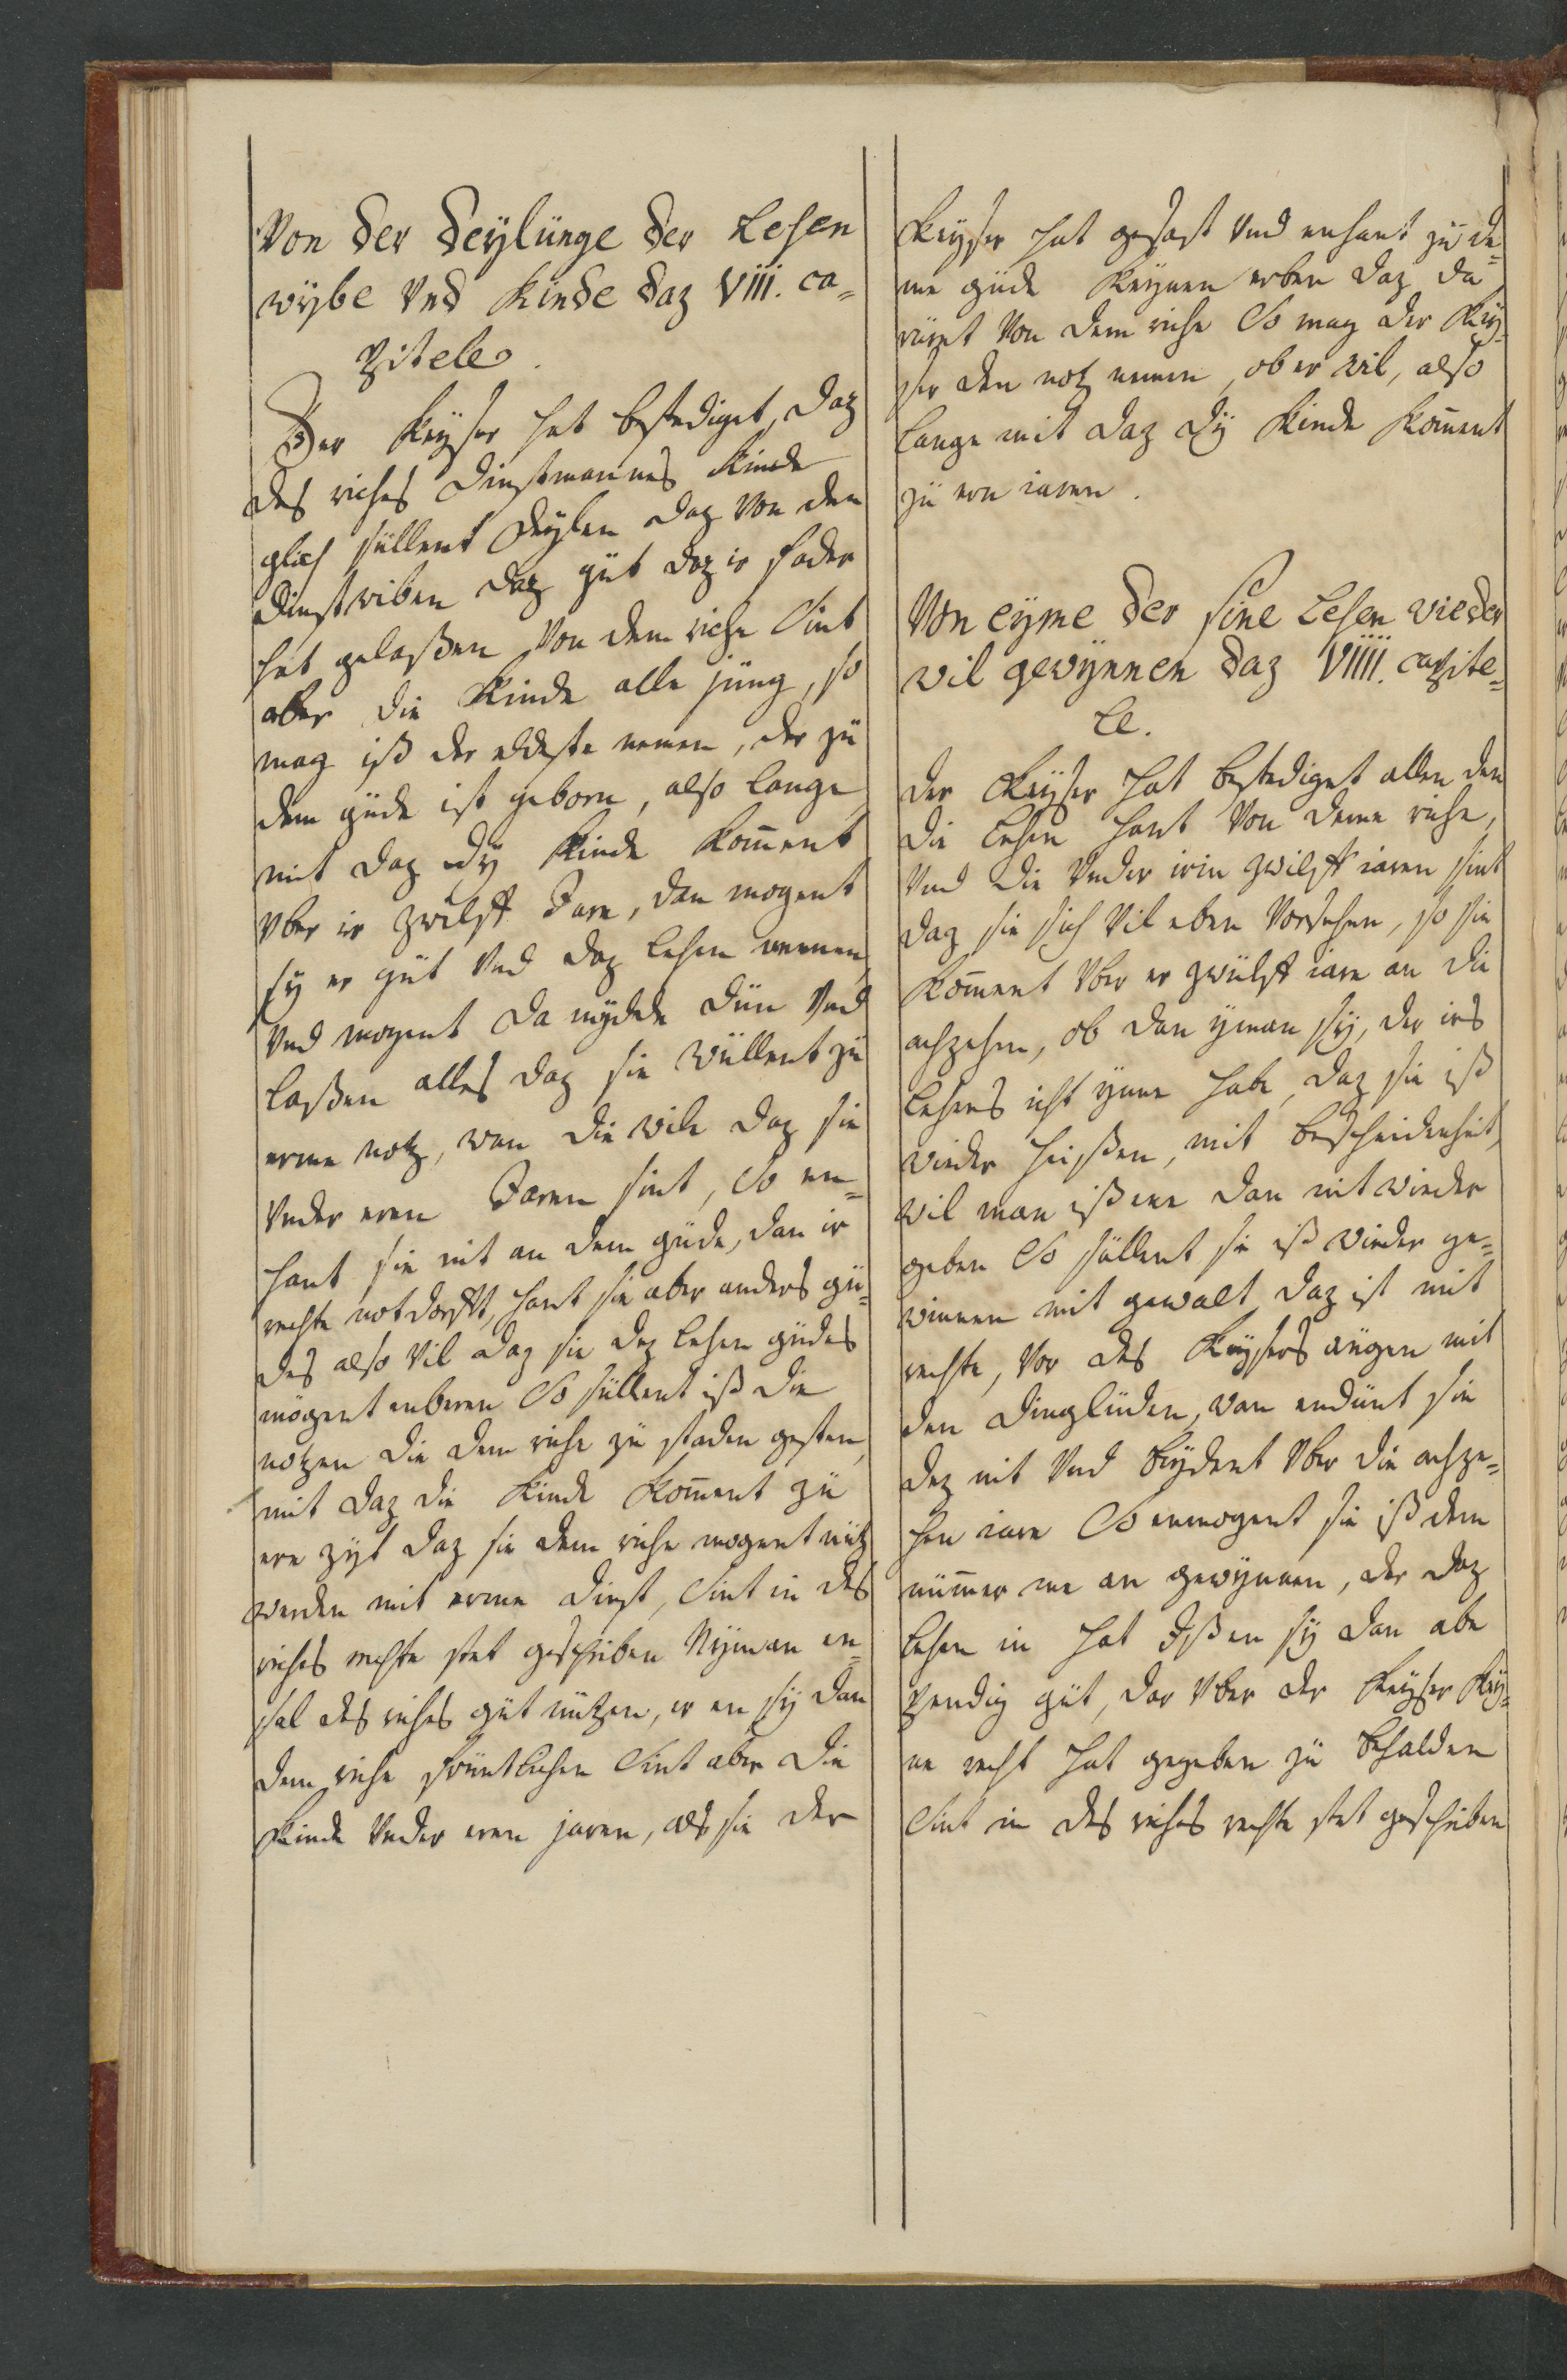 Von der deylünge der Lehen
wÿbe Vnd kinde daz VIII. ca=
pitele.
Der keyser hat bestediget, daz
des riches dinstmannes kinde
glich süllent deylen daz von den
dinstwiben daz güt daz ir fader
hat gelaßen Von dem riche Sint
aber die kinde alle jüng, so
mag iß der eldeste nemen, der zü
dem güde ist geborn, also lange
mit daz dÿ kinde kom̄ent
Vber ir zwilff Jare, dan mogent
sÿ er güt Vnd daz lehen nemen
Vnd mogent da mydde dün Vnd
laßen alles daz sie wüllent zü
erme notz, wan die wile daz sie
Vnder eren Jaren sint, So en=
hant sie nit an dem güde, dan ir
rechte notdorfft, hant sie aber anders gü=
des also Vil daz sie dez lehen güdes
mögent enberen So süllent iß die
notzen die dem riche zü staden gesten,
mit daz die kinde kom̄ent zü
ere zÿt daz sie dem riche mogent nütz
werden mit erme dinst, Sint in des
riches rechte stet geschriben Nÿman en=
sal des riches güt nützen, er en sÿ dan
dem riche früntlichen Sint aber die
kinde Vnder eren jaren, als sie der
keyser hat gesast Vnd enhant zü de=
me güde keynen erben daz da
rüret Von dem riche So mag der key=
ser den notz nemen, ob er wil, also
lange mit daz dÿ kinde kom̄ent
zü ern iaren.
Von eyme der sine Lehen wieder
wil gewÿnnen daz VIIII. capite=
le.
Der keyser hat bestediget allen den
die lehen hant Von deme riche,
Vnd die Vnder irin zwilff iaren sint
daz sie sich Vil eben Vorsehen, so sie
kom̄ent Vber er zwülff iare an die
achzehen, ob dan yman sÿ, der irs
lehens icht ynne habe, daz sie iß
wieder heißen, mit bescheidenheit,
wil man iß ene dan nit wieder
geben So süllent sie iß wieder ge=
winnen mit gewalt, daz ist mit
rechte, Vor des keysers aügen mit
den dinglüden, wan endünt sie
dez nit Vnd beydent Vber die achze=
hen iare So enmogent sie iß dem
nüm̄er me an gewÿnnen, der daz
lehen in hat Ißen sÿ dan abe
wendig güt, dar Vber der keyser key=
ne recht hat gegeben zü behalden
Sint in des riches rechte stet geschriben